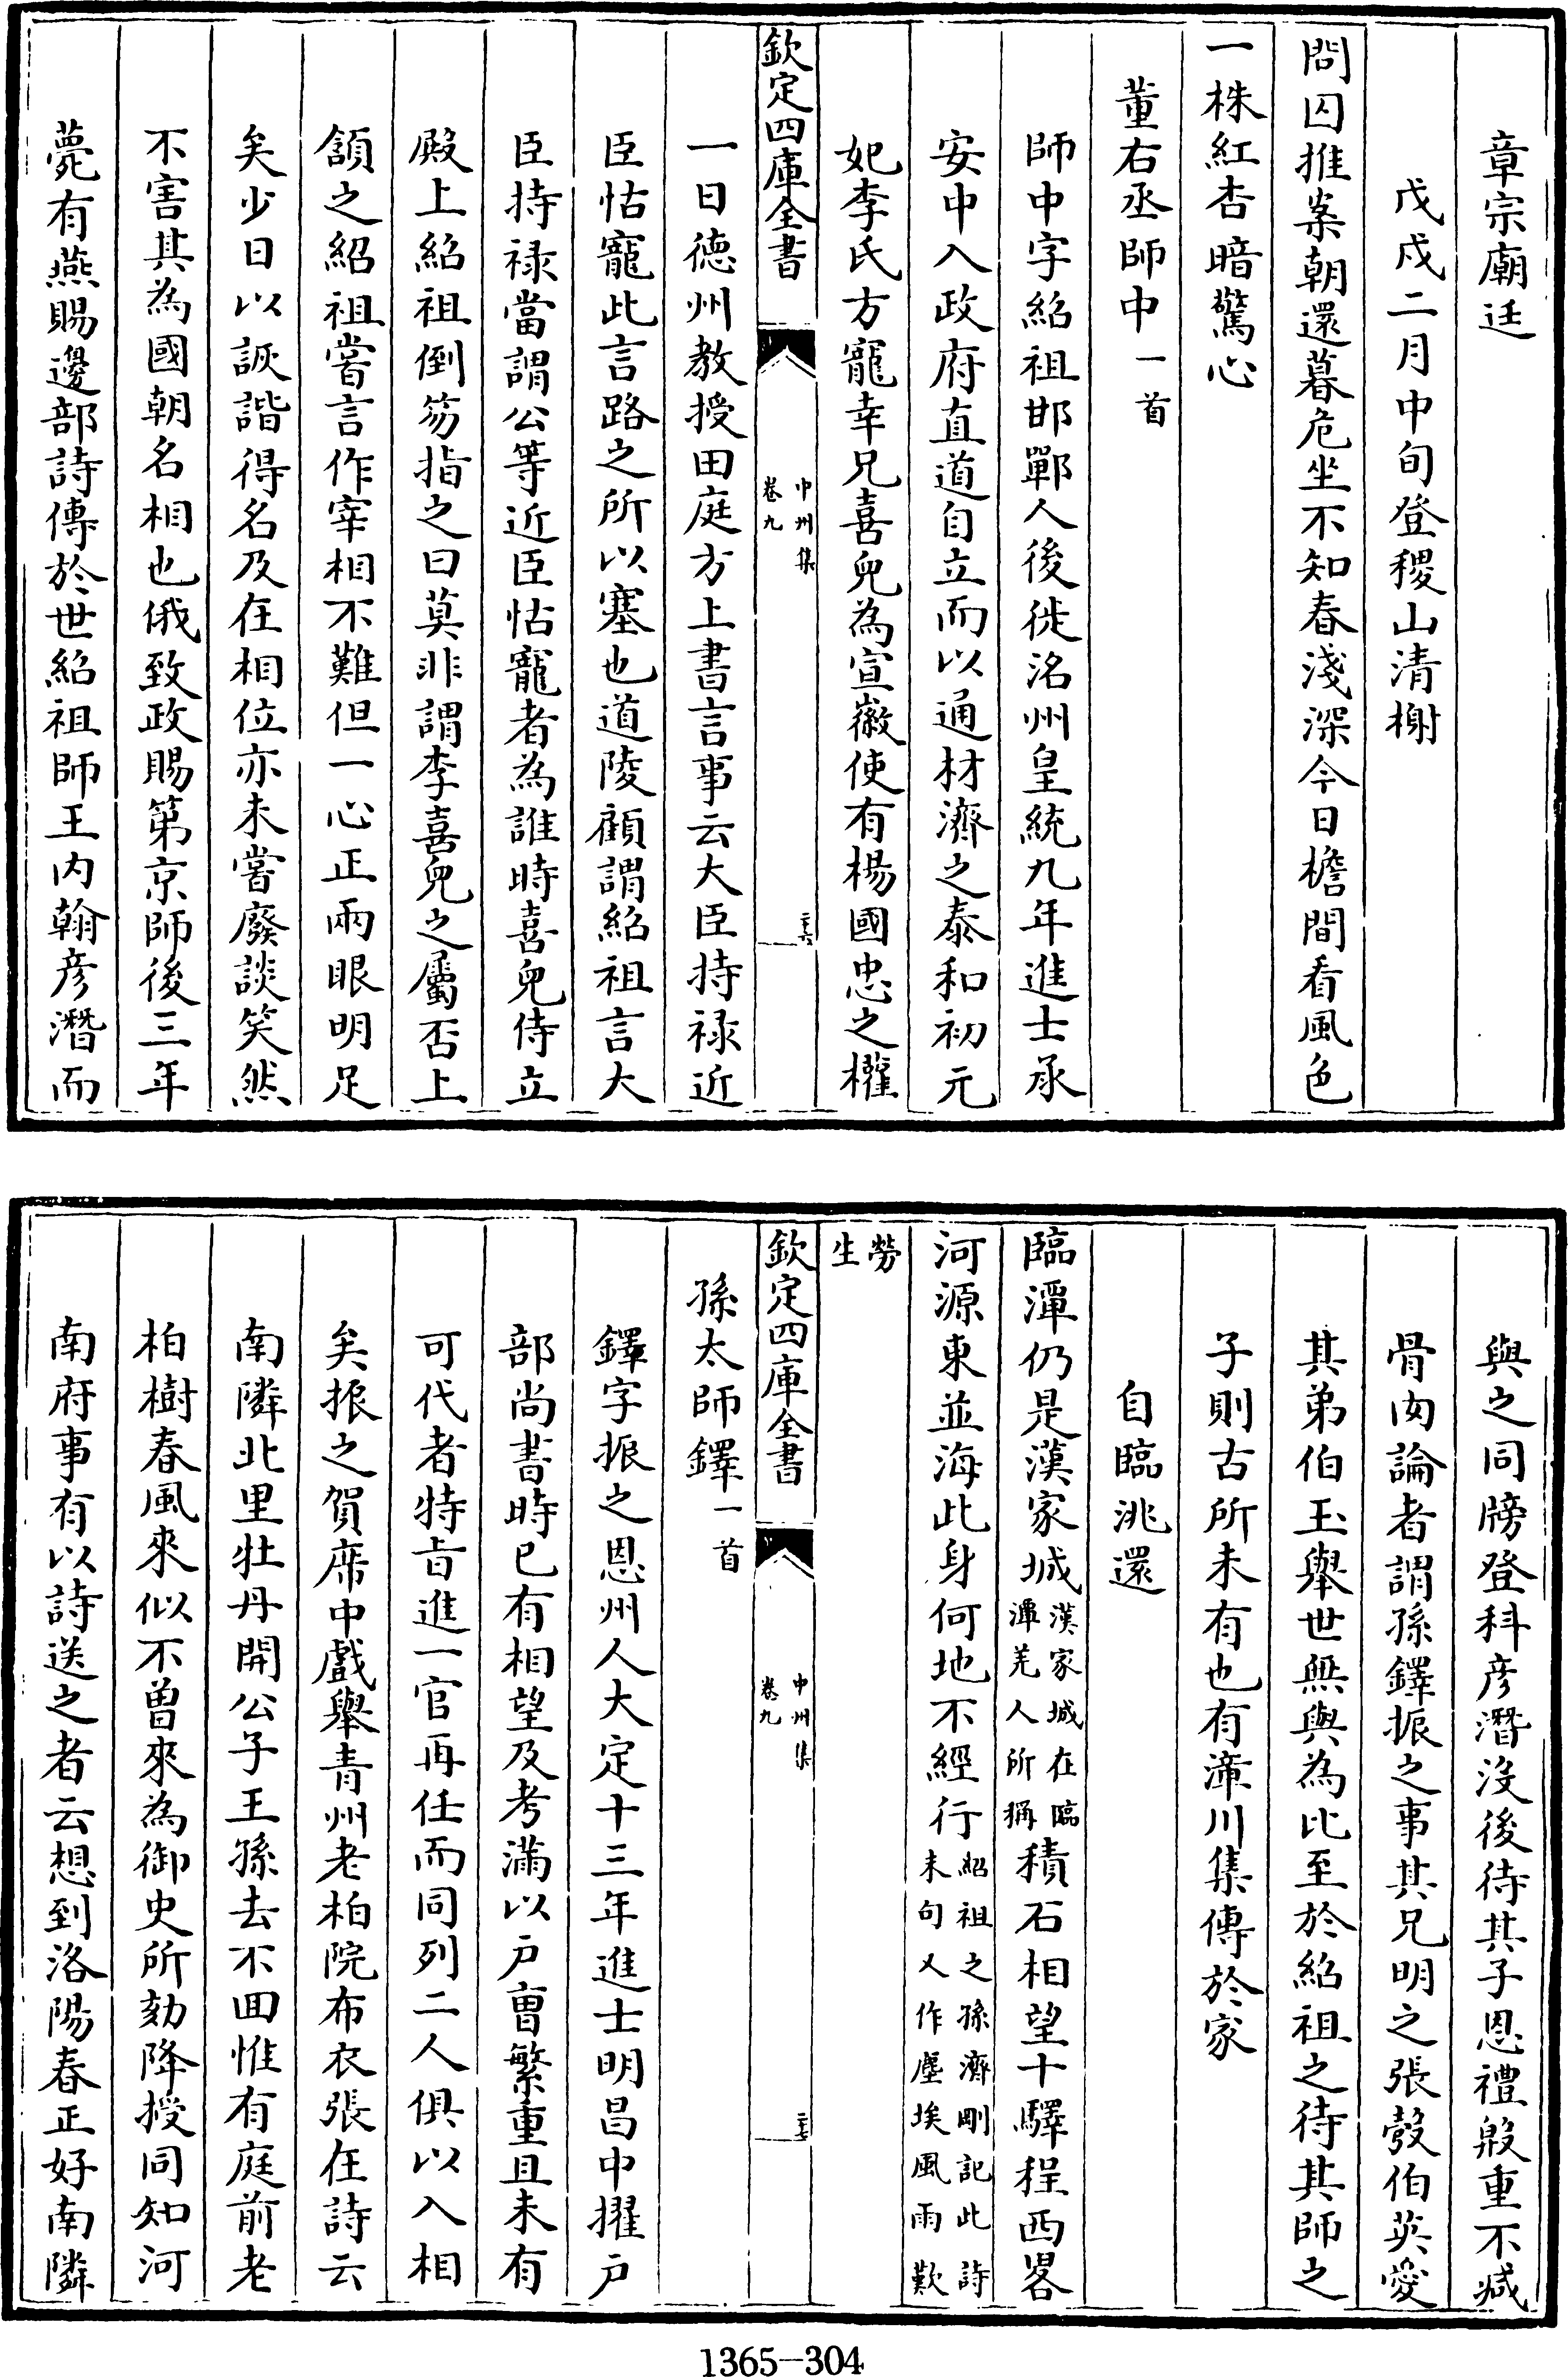 章宗廟廷
戊戌二月中旬登稷山清榭
問囚推案朝還暮危坐不知春淺深今日檐間看風色
一株紅杏暗驚心
董右丞師中一首
師中字紹祖邯鄲人後徙洺州皇統九年進士承
安中入政府直道自立而以通材濟之泰和初元
妃李氏方寵幸兄喜兒為宣徽使有楊國忠之權
欽定四庫全書
中州集
卷九
二十六
一日德州教授田庭方上書言事云大臣持祿近
臣怙寵此言路之所以塞也道陵顧謂紹祖言大
臣持祿當謂公等近臣怙寵者為誰時喜兒侍立
殿上紹祖倒笏指之曰莫非謂李喜兒之屬否上
頷之紹祖嘗言作宰相不難但一心正兩眼明足
矣少日以詼諧得名及在相位亦未嘗廢談笑然
不害其為國朝名相也俄致政賜第京師後三年
薨有燕賜邊部詩傳於世紹祖師王内翰彦潛而
與之同牓登科彦潛沒後待其子恩禮殷重不減
骨肉論者謂孫鐸振之事其兄明之張㲄伯英愛
其弟伯玉舉世無與為比至於紹祖之待其師之
子則古所未有也有漳川集傳於家
自臨洮還
臨潭仍是漢家城漢家城在臨潭羌人所稱積石相望十驛程西畧
河源東並海此身何地不經行紹祖之孫濟剛記此詩末句又作塵埃風雨歎
勞生
欽定四庫全書
中州集
卷九
二十七
孫太師鐸一首
鐸字振之恩州人大定十三年進士明昌中擢户
部尚書時已有相望及考滿以户曹繁重且未有
可代者特旨進一官再任而同列二人俱以入相
矣振之賀席中戲舉青州老柏院布衣張在詩云
南隣北里牡丹開公子王孫去不囬惟有庭前老
柏樹春風來似不曾來為御史所劾降授同知河
南府事有以詩送之者云想到洛陽春正好南隣
1365-304